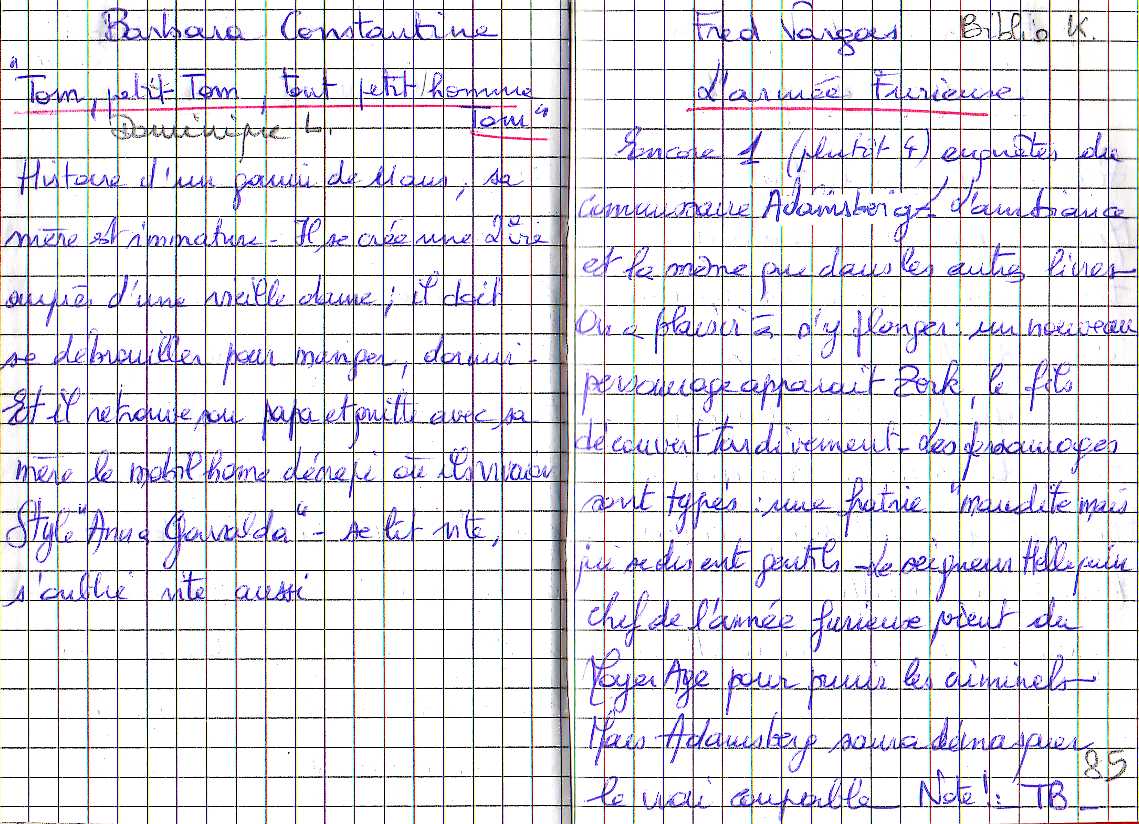 Barbara Constantine
"Tom, petit Tom, tout petit homme
Tom"
Dominique L.
Histoire d'un gamin de 11 ans, sa
mère est immature - Il se crée une 2è vie
auprès d'une vieille dame; il doit
se débrouiller pour manger, dormir -
Et il retrouve son papa et quitte avec sa
mère le mobil home décrépi où ils vivaient
Style "Anna Gavalda" - se lit vite,
s'oublie vite aussi
Fred Vargas Biblio K.
L'armée Furieuse
Encore 1 (plutôt 4) enquêtes du
commissaire Adamsberg - l'ambiance
est la même que dans les autres livres -
On a plaisir à s'y plonger: un nouveau
personnage apparait Zerk, le fils
découvert tardivement - des personnages
sont typés: une fratrie "maudite mais
qui se disent gentils - Le seigneur Hellequin
chef de l'armée furieuse vient du
Moyen Age pour punir les criminels -
Mais Adamsberg saura démasquer
le vrai coupable - Note!: TB -
85